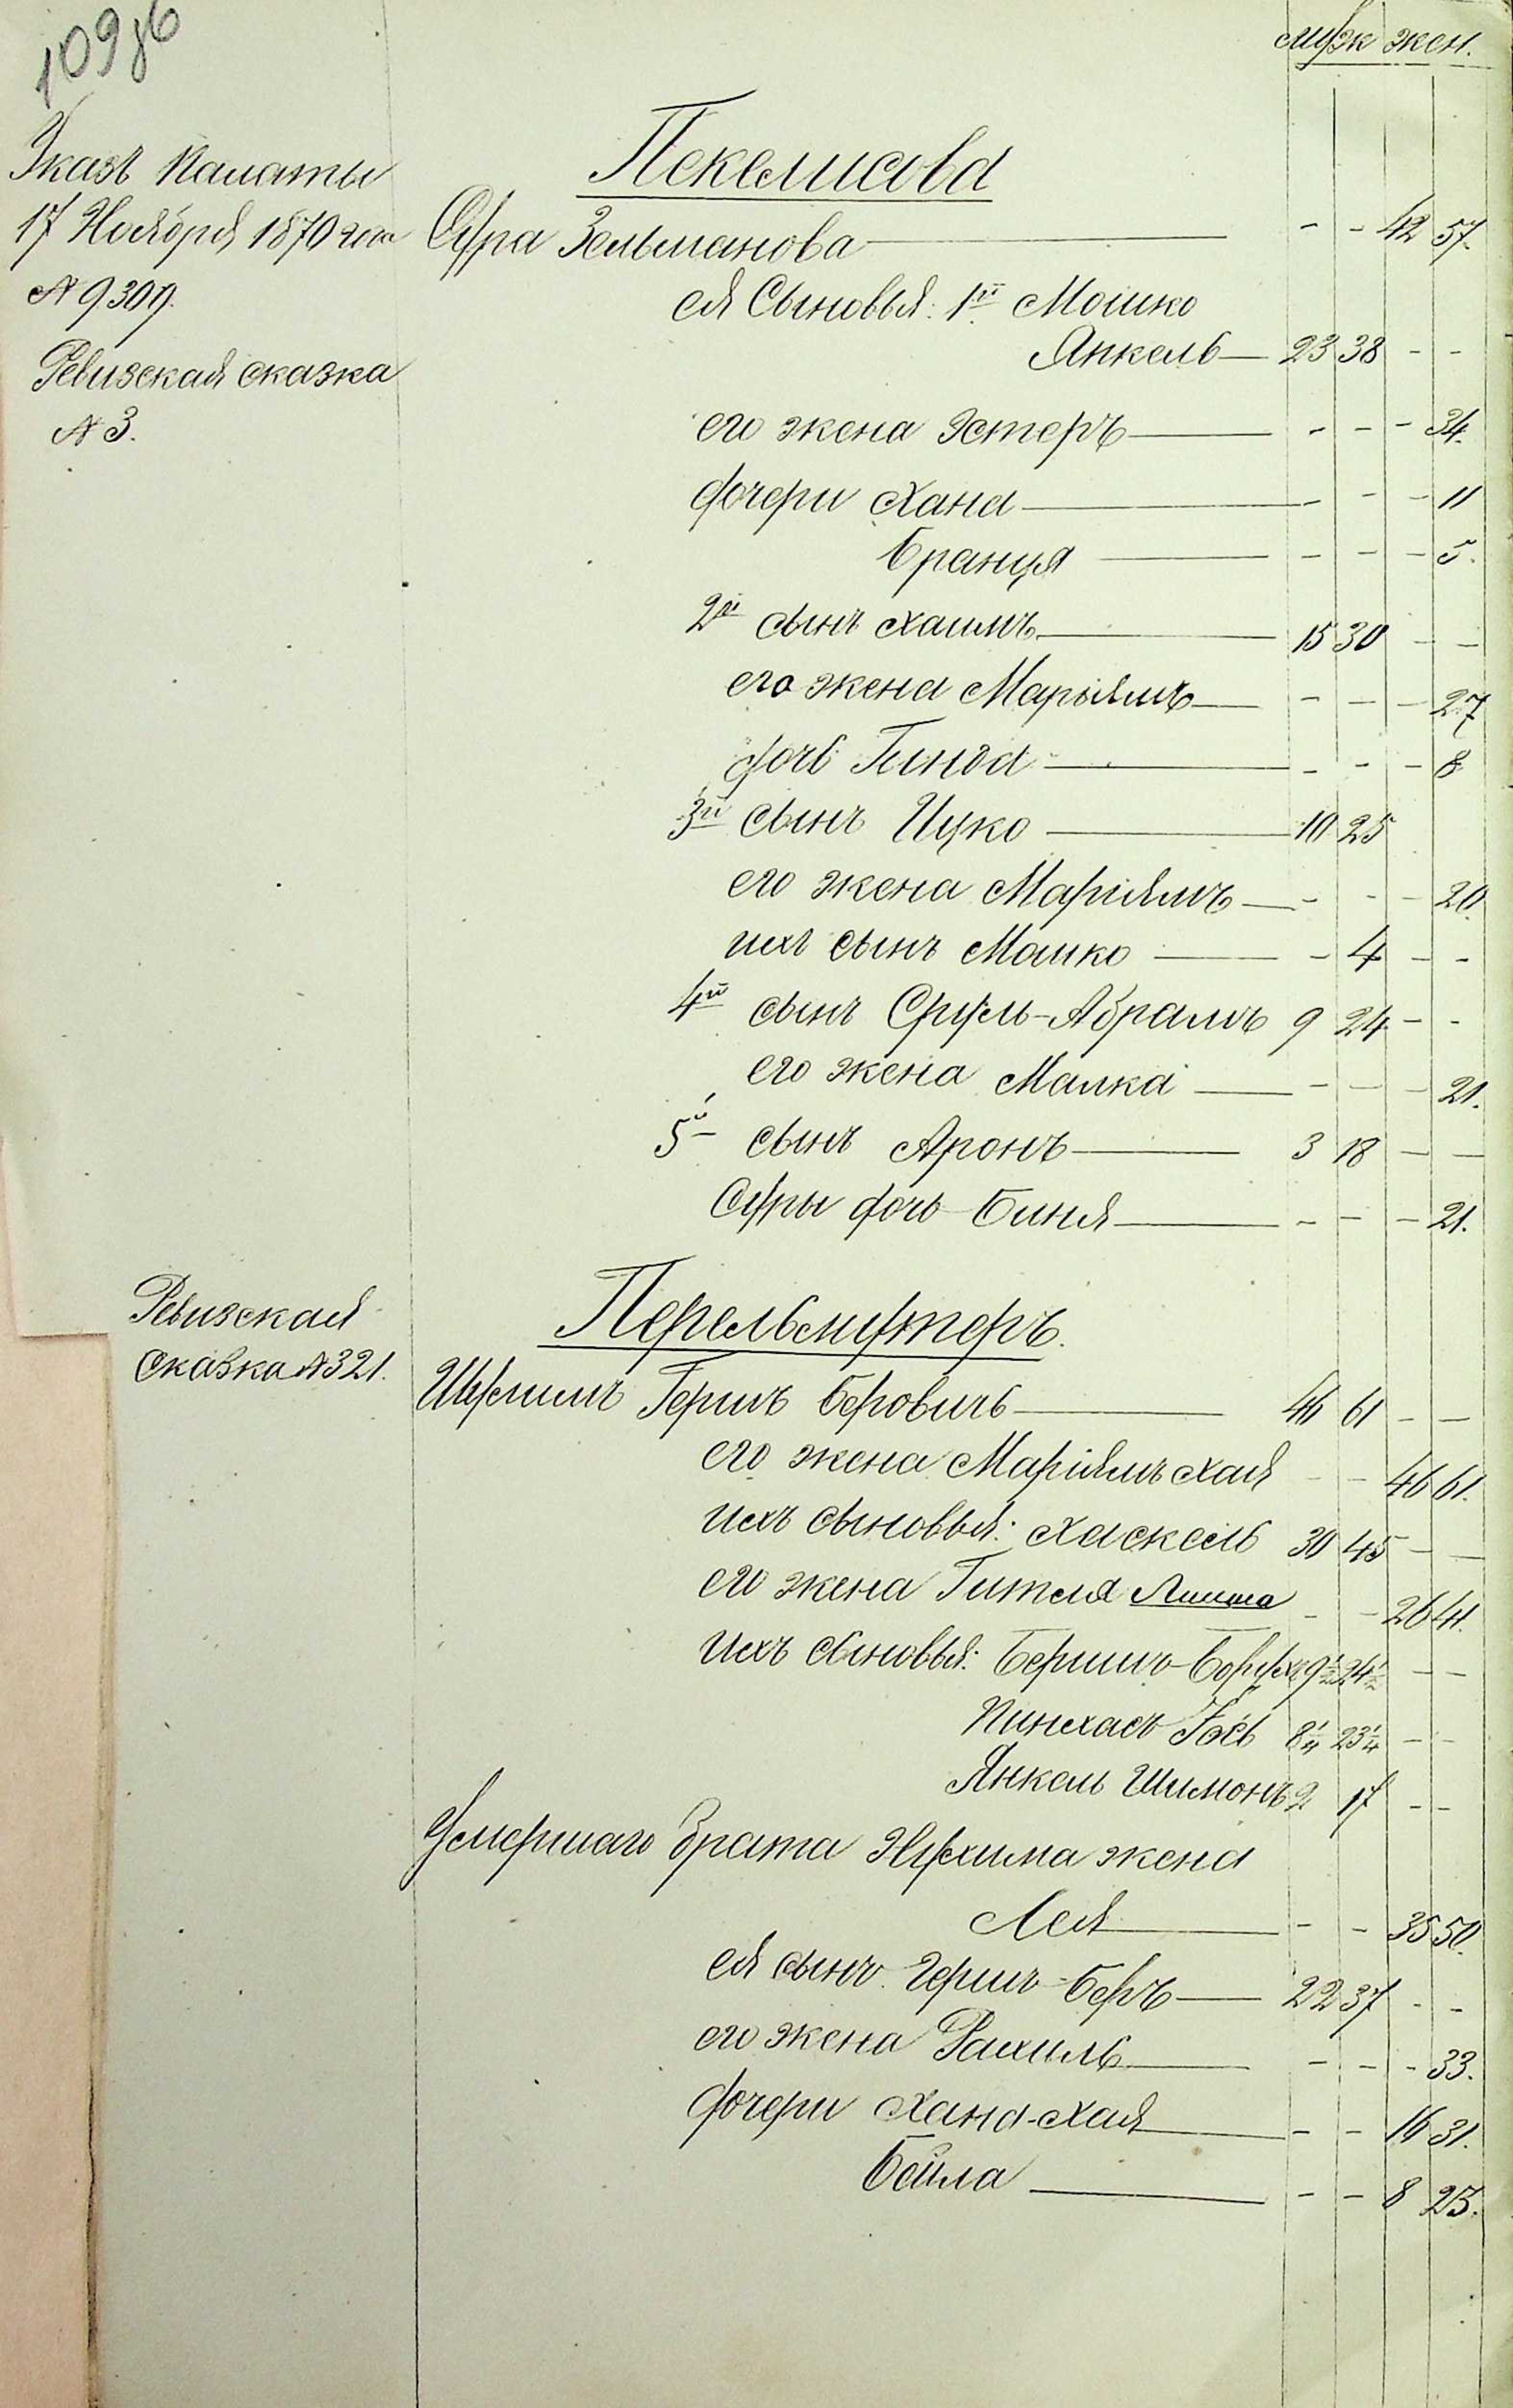 109об
муж жен.
Указъ Палаты
17 Ноября 1870 года
№ 9309.
Ревизская сказка
№ 3.
Пекелисова
Сура Зельманова — - - 42 57.
ея Сыновья: 1й Мошко
Янкель — 23 38 - -
его жена Эстеръ — - - - 34.
дочери Хана — - - - 11
Бранця — - - - 5.
2й сынъ Хаимъ — 15 30 - -
его жена Марьямъ — - - - 27
дочь Гинда — - - - 8
3й сынъ Ицко — 10 25
его жена Маріямъ — - - - 20.
ихъ сынъ Мошко — - 4 - -
4й сынъ Сруль-Абрамъ 9 24 - -
его жена Малка — - - - 21.
5й сынъ Аронъ — 3 18 - -
Суры дочь Биня — - - - 21.
Ревизская
Сказка № 321.
Перельмутеръ.
Гершъ Беровичъ — 46 61 - -
его жена Маріямъ Хая - - 46 61.
ихъ сыновья: Хаскель 30 45 - -
его жена Гителя - - 26 41.
ихъ сыновья: Бершъ-Борухъ 9½ 24½ - -
Пинхасъ 8¼ 23¼ - -
Янкель Шимонъ 2 17 - -
Умершаго брата Нухима жена
Лея — - - 35 50.
ея сынъ Гершъ-Беръ — 22 37 - -
его жена Рахиль — - - - 33.
дочери Хана-Хая — - - 16 31.
Бейла — - - 8 23.